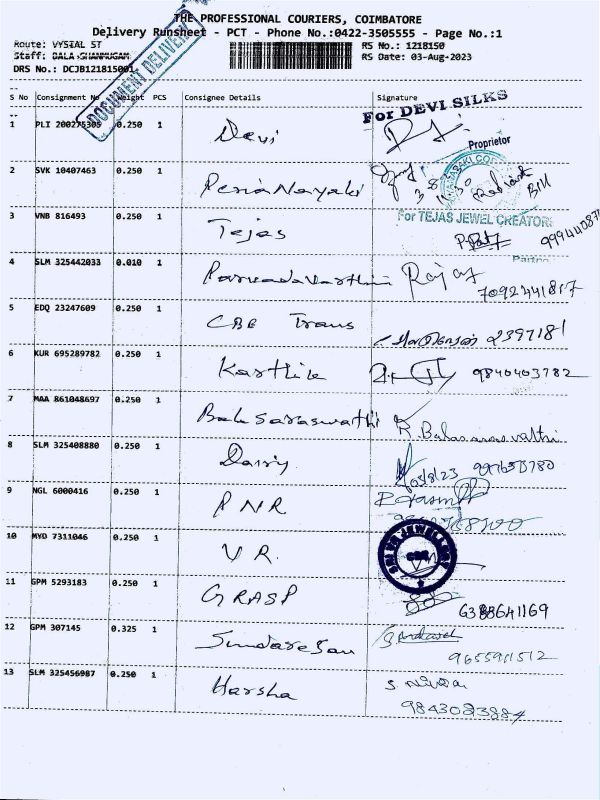 THE PROFESSIONAL COURIERS, COIMBATORE
Delivery Runsheet - PCT - Phone No.:0422-3505555 - Page No.:1
Route: VYSIAL ST
RS No.: 1218150
Staff: BALA SHANMUGAM
RS Date: 03-Aug-2023
DRS No.: DCJB121815001
DOCUMENT DELIVERY
S No Consignment No Weight PCS Consignee Details Signature
For DEVI SILKS
1 PLI 200275305 0.250 1 Devi
Proprietor
2 SVK 10407463 0.250 1 PeriaNayaki
For TEJAS JEWEL CREATOR
3 VNB 816493 0.250 1 Tejas
4 SLM 325442033 0.010 1 Parvadavarthini
7092441817
5 EDQ 23247609 0.250 1 CBE Trans
2397181
6 KUR 695289782 0.250 1 Karthik 9840403782
7 MAA 861048697 0.250 1 Balasaraswathi R. Balasaraswathi
8 SLM 325408880 0.250 1 Dairy
9 NGL 6000416 0.250 1 PNR
10 MYD 7311046 0.250 1 VR
11 GPM 5293183 0.250 1 GRASP
12 GPM 307145 0.325 1 Sundaresan
9655911512
13 SLM 325456987 0.250 1 Harsha
9843083884